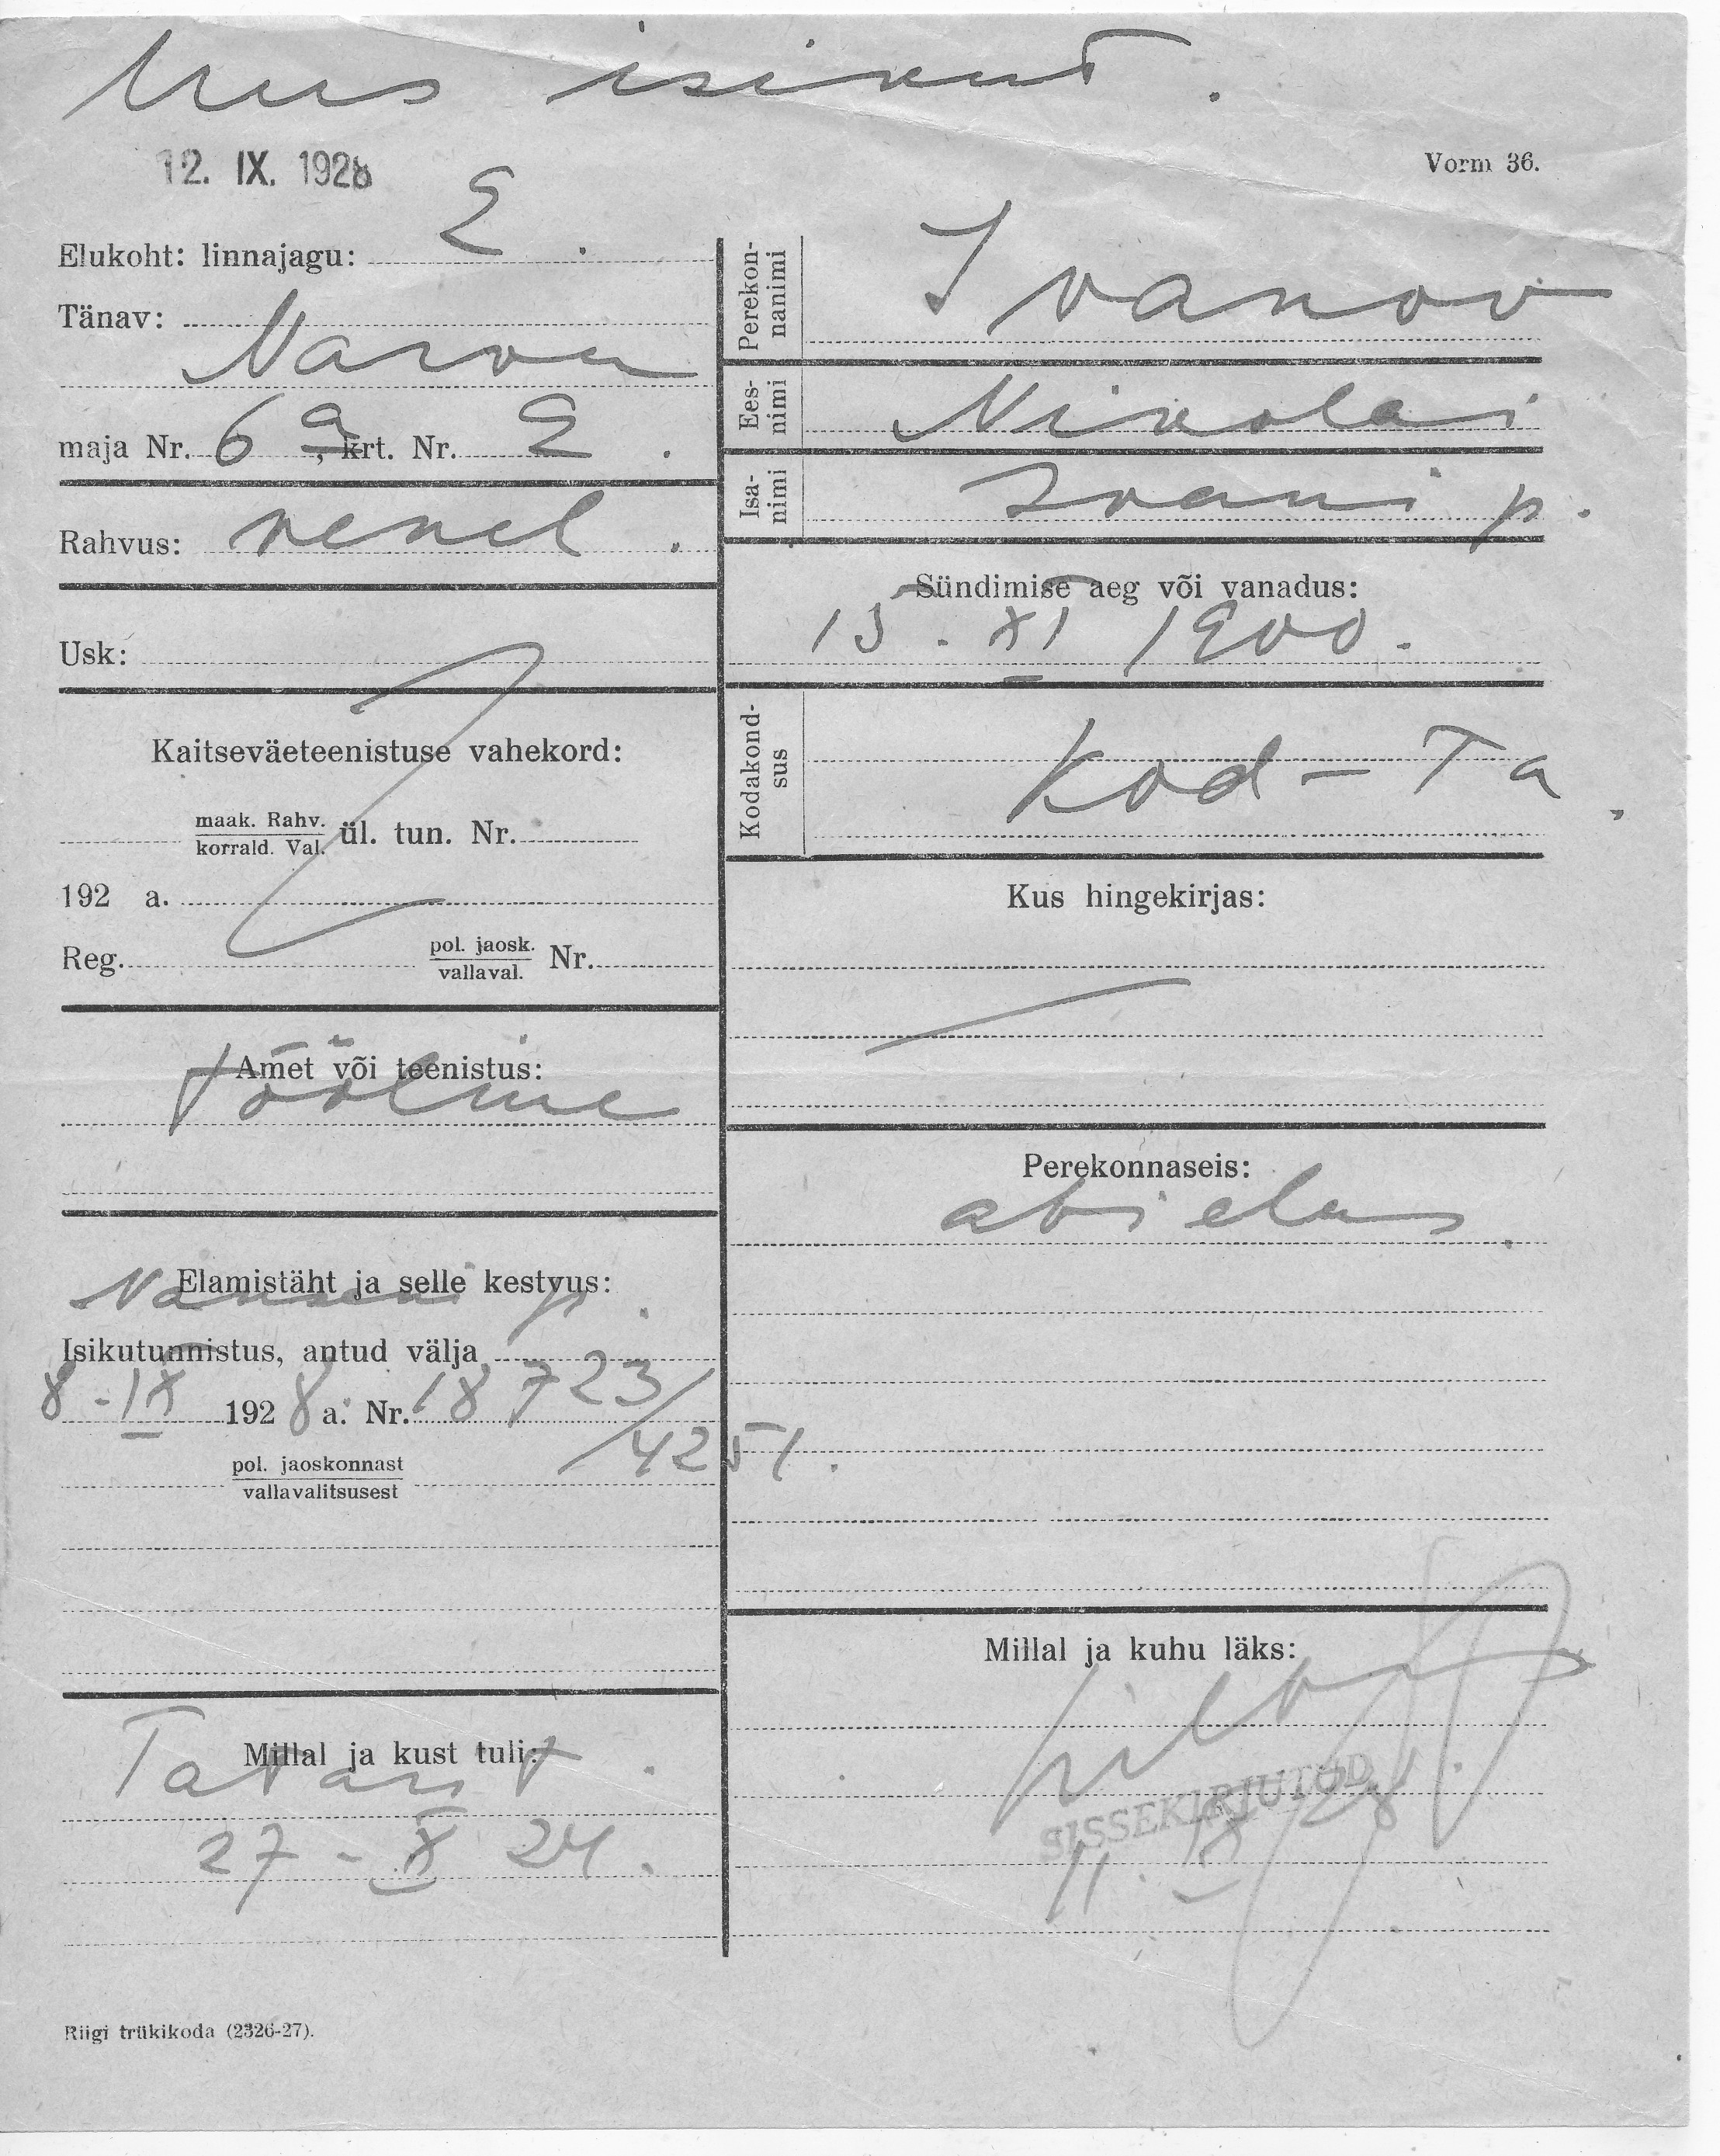 Uus isikut.
12. IX. 1928
Vorm 36.
Elukoht: linnajagu: 2.
Tänav:
Narva
maja Nr. 6 a, krt. Nr. 2.
Rahvus: venel.
Usk:
Kaitseväeteenistuse vahekord:
maak. Rahv.
korrald. Val. ül. tun. Nr.
192 a.
Reg. pol. jaosk.
vallaval. Nr.
Amet või teenistus:
tööline
Elamistäht ja selle kestvus:
Nanseni p.
Isikutunnistus, antud välja
8-IX 1928 a. Nr. 18723/
4251.
pol. jaoskonnast
vallavalitsusest
Millal ja kust tuli:
Tatari t.
27-X 24.
Riigi trükikoda (2326-27).
Perekon-
nanimi
Ivanov
Ees-
nimi
Nikolai
Isa-
nimi
Ivani p.
Sündimise aeg või vanadus:
15. XI 1900.
Kodakond-
sus
Kod-Ta.
Kus hingekirjas:
Perekonnaseis:
abielus.
Millal ja kuhu läks:
SISSEKIRJUTUD
11. IX 28.